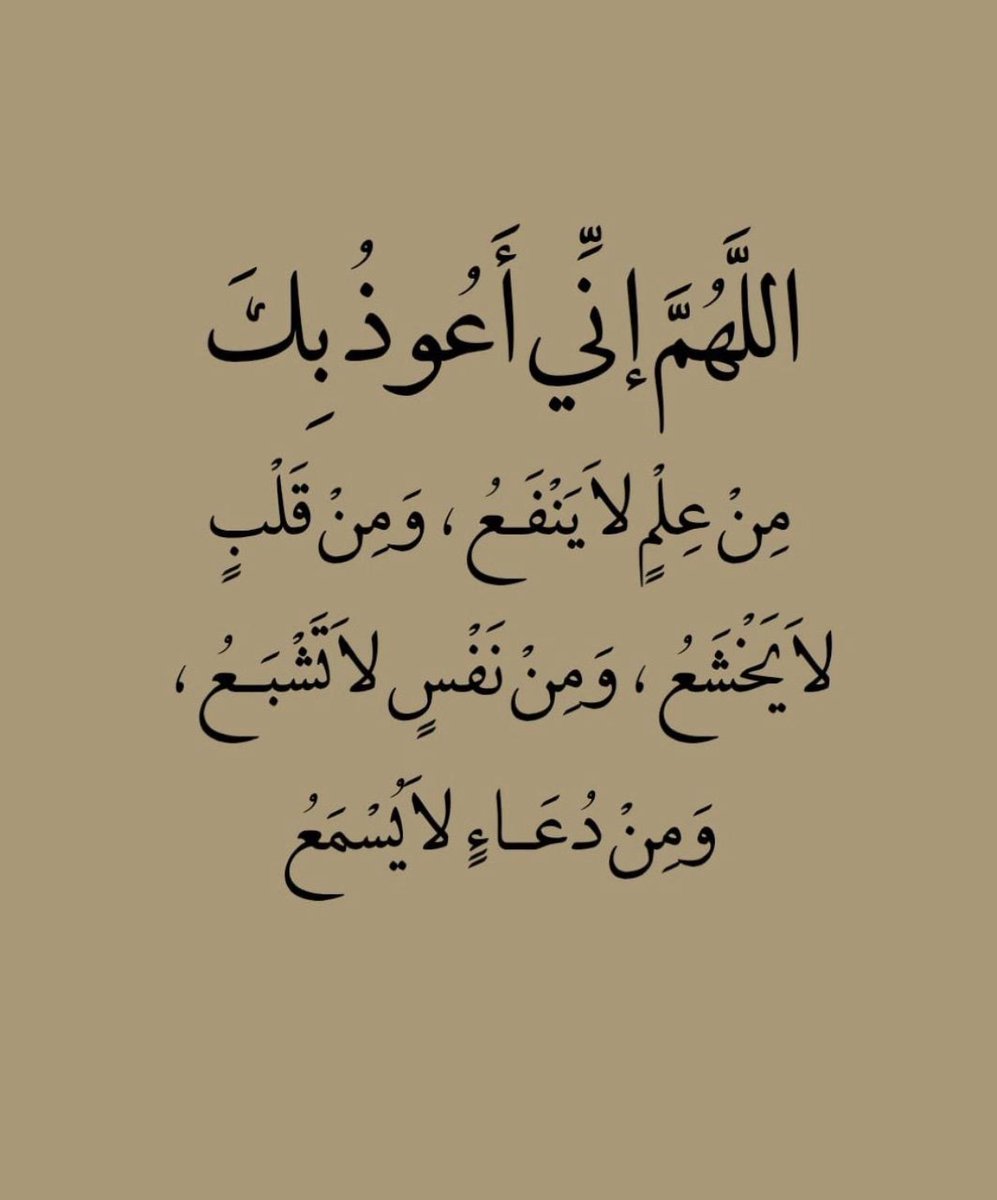 اللَّهُمَّ إِنِّي أَعُوذُ بِكَ
مِنْ عِلْمٍ لاَ يَنْفَعُ ، وَمِنْ قَلْبٍ
لاَ يَخْشَعُ ، وَمِنْ نَفْسٍ لاَ تَشْبَعُ ،
وَمِنْ دُعَاءٍ لاَ يُسْمَعُ